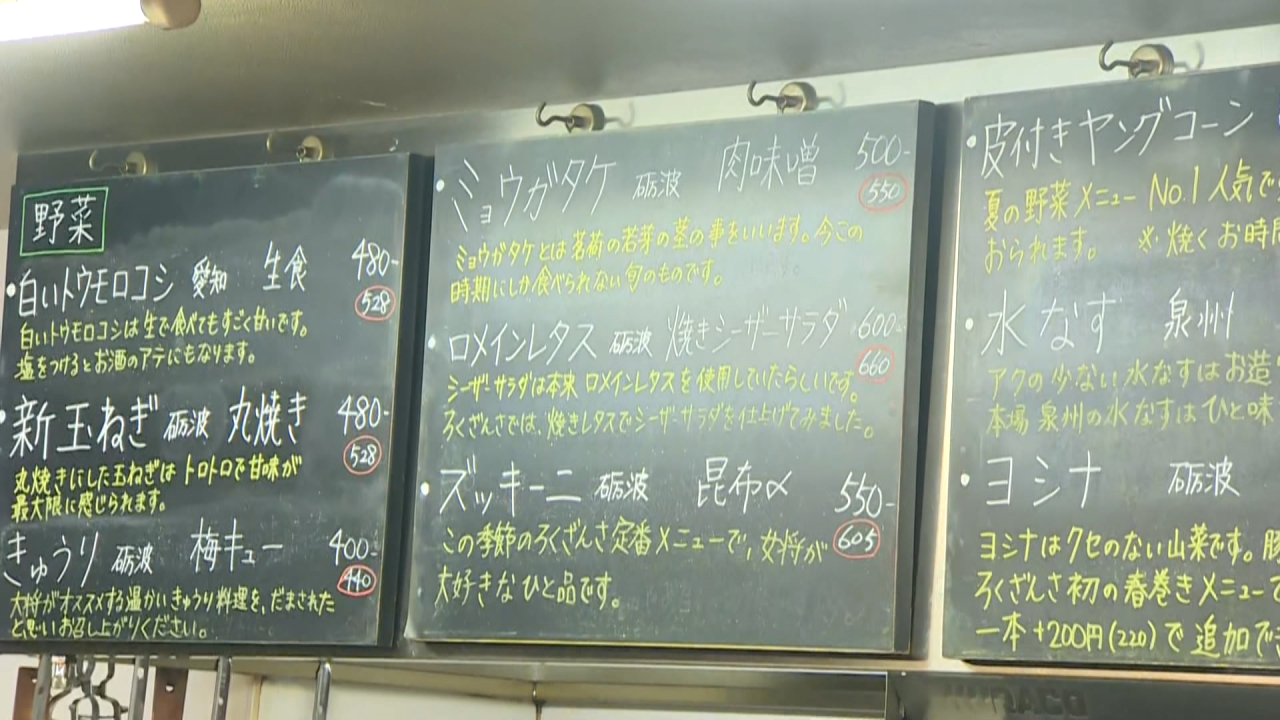 野菜
・白いトウモロコシ 愛知 生食 480-
528
白いトウモロコシは生で食べてもすごく甘いです。
塩をつけるとお酒のアテにもなります。
・新玉ねぎ 砺波 丸焼き 480-
528
丸焼きにした玉ねぎはトロトロで甘味が
最大限に感じられます。
きゅうり 砺波 梅キュー 400-
440
大将がオススメする温かいきゅうり料理を、だまされた
と思いお召し上がりください。
・ミョウガタケ 砺波 肉味噌 500-
550
ミョウガタケとは茗荷の若芽の茎の事をいいます。今この
時期にしか食べられない旬のものです。
・ロメインレタス 砺波 焼きシーザーサラダ 600-
660
シーザーサラダは本来 ロメインレタスを使用していたらしいです。
ろくざんさでは、焼きレタスでシーザーサラダを仕上げてみました。
・ズッキーニ 砺波 昆布〆 550-
605
この季節のろくざんさ定番メニューで、女将が
大好きなひと品です。
・皮付きヤングコーン
夏の野菜メニュー No.1 人気で
おられます。 ※焼くお時間
・水なす 泉州
アクの少ない水なすはお造
本場泉州の水なすはひと味
・ヨシナ 砺波
ヨシナはクセのない山菜です。豚
ろくざんさ初の春巻きメニューで
一本+200円(220)で追加で